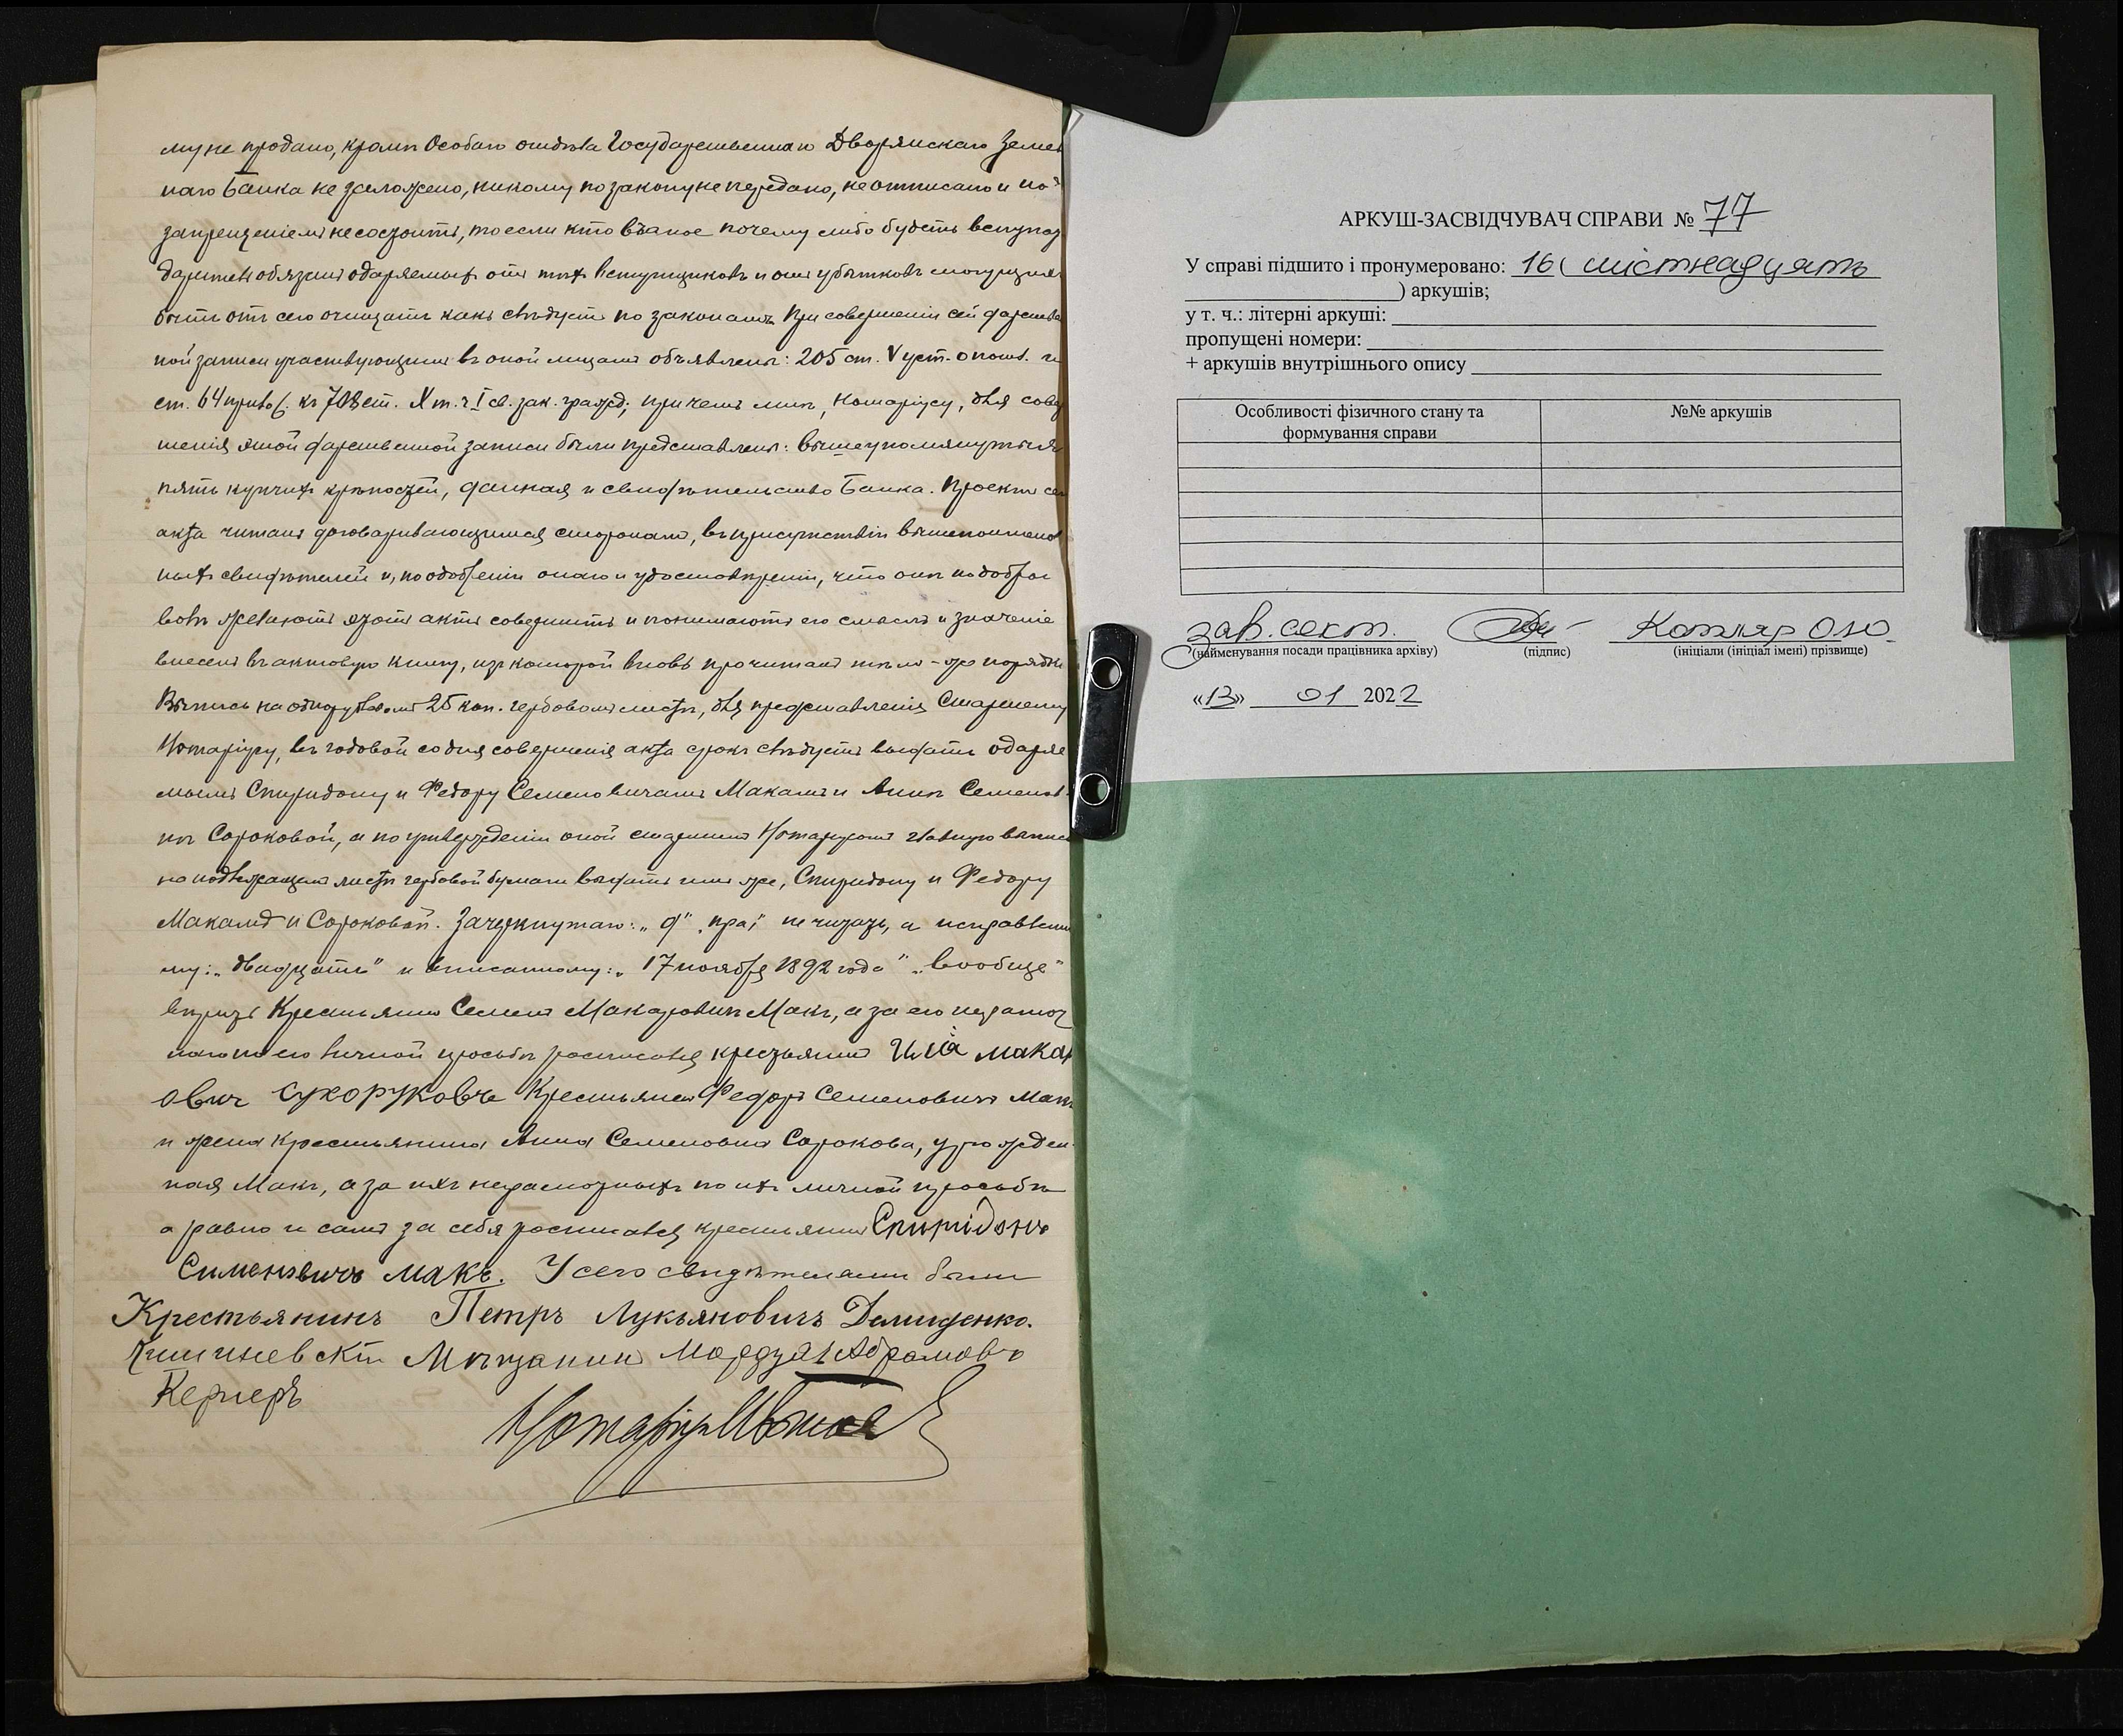 му не продано, кромѣ Особаго отдѣла Государственнаго Дворянскаго Земель
наго Банка не заложено, никому по закону не передано, не отписано и подъ
запрещеніемъ не состоитъ, то если кто въ оное почему либо будетъ вступат
даритель обязанъ одаряемыхъ отъ тѣхъ вступщиковъ и отъ убытковъ могущихъ
быть отъ сего очищать какъ слѣдуетъ по законамъ. При совершеніи сей дарствен
ной записи участвующимъ въ оной лицамъ объявлены: 205 ст. V уст. о пошл. и
ст. 64 прил. къ 708 ст. X т. ч. I св. зак. гражд; при чемъ мнѣ, Нотаріусу, для совер
шенія этой дарственной записи были представлены: вышеупомянутыя
пять купчихъ крѣпостей, данная и свидѣтельство Банка. Проектъ сего
акта читанъ договаривающимся сторонамъ, въ присутствіи вышепоименован
ныхъ свидѣтелей и, по одобреніи онаго и удостовѣреніи, что они по доброй
волѣ желаютъ этотъ актъ совершить и понимаютъ его смыслъ и значеніе
внесенъ въ актовую книгу, изъ которой вновь прочитанъ тѣмъ-же порядкомъ
Выпись на однорублевомъ 25 коп. гербовомъ листѣ, для представленія Старшему
Нотаріусу, въ годовой со дня совершенія акта срокъ слѣдуетъ выдать одаряе
мымъ Спиридону и Федору Семеновичамъ Макамъ и Аннѣ Семенов
нѣ Сороковой, а по утвержденіи оной старшимъ Нотаріусомъ главную выпись
на подлежащемъ листѣ гербовой бумаги выдать имъ же, Спиридону и Федору
Макамъ и Сороковой. Зачеркнутаго: „д" „пра" не читать, а исправленно
му: „двадцать" и вписанному: „17 ноября 1892 года" „вообще"
вѣрить Крестьянинъ Семенъ Макаровичъ Макъ, а за его неграмот
наго по его личной просьбѣ росписался крестьянинъ Илiа Макар
ович Сухоруковъ Крестьянинъ Федоръ Семеновичъ Макъ
и жена крестьянина Анна Семеновна Сорокова, урожден
ная Макъ, а за нихъ неграмотныхъ по ихъ личной просьбѣ
а равно и самъ за себя росписался крестьянинъ Спирідонъ
Сименовичъ Макъ. У сего свидѣтелями были
Крестьянинъ Петръ Лукьяновичъ Демиденко.
Кишиневскій Мѣщанинъ Мордуа Абрамовъ
Кернеръ
Нотаріусъ
АРКУШ-ЗАСВІДЧУВАЧ СПРАВИ № 77
У справі підшито і пронумеровано: 16 ( шістнадцять
) аркушів;
у т. ч.: літерні аркуші:
пропущені номери:
+ аркушів внутрішнього опису
Особливості фізичного стану та №№ аркушів
формування справи
зав. сект. Котляр О.Ю.
(найменування посади працівника архіву) (підпис) (ініціали (ініціал імені) прізвище)
«13» 01 2022